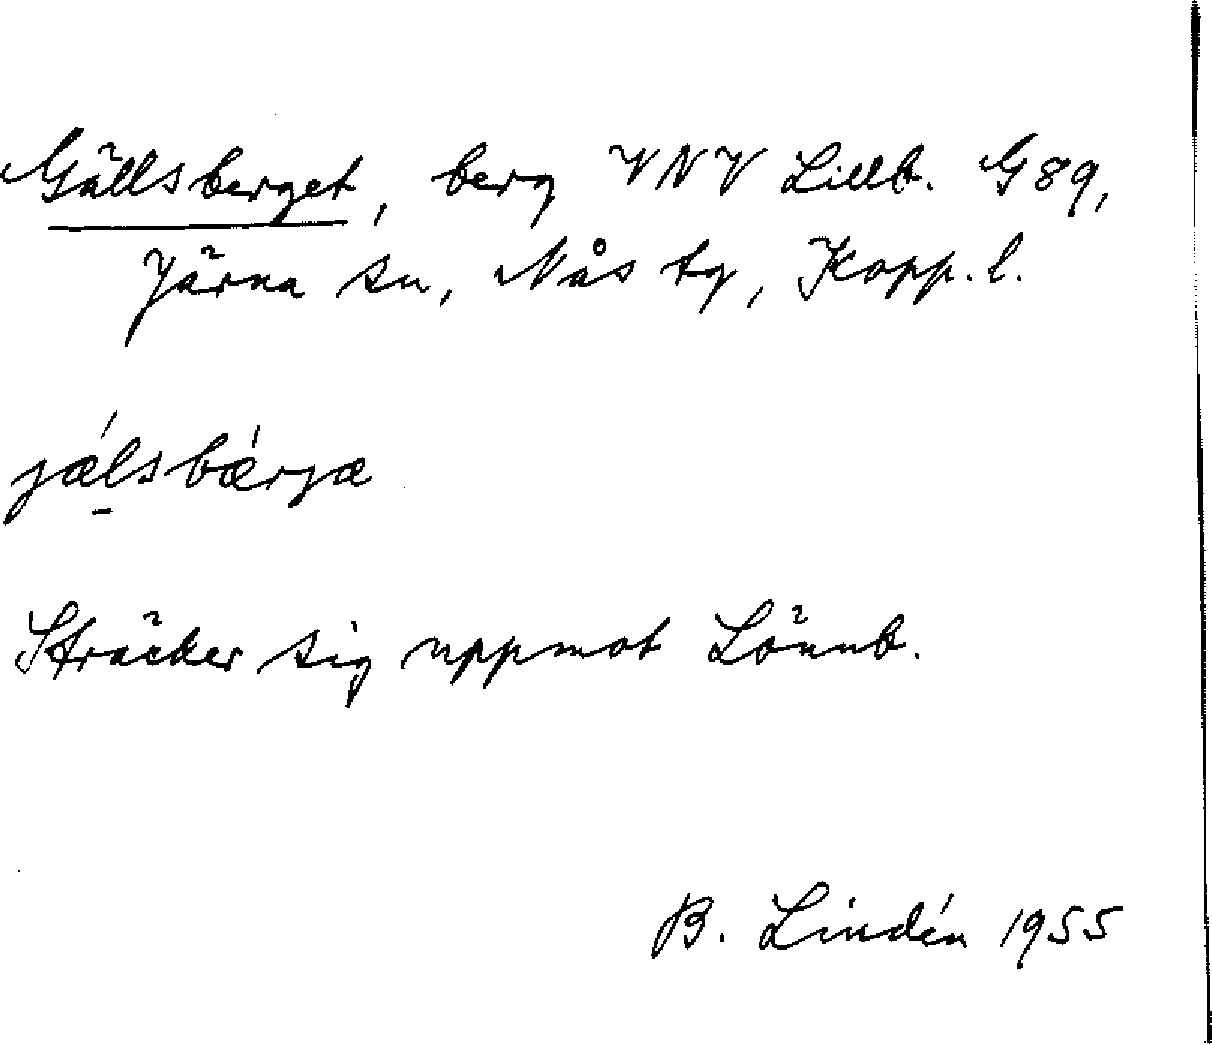 Gällsberget, berg VNV Lillb. G89,
Järna sn, Nås tg, Kopp. l.
jǽl̠sbǽrjæ
Sträcker sig uppmot Lönnb.
B. Lindén 1955